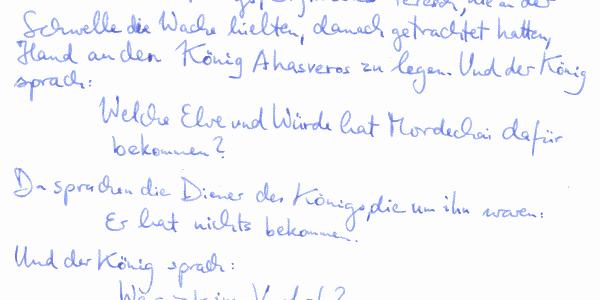 die an der
Schwelle die Wache hielten, danach getrachtet hatten,
Hand an den König Ahasveros zu legen. Und der König
sprach:
Welche Ehre und Würde hat Mordechai dafür
bekommen?
Da sprachen die Diener des Königs, die um ihn waren:
Er hat nichts bekommen.
Und der König sprach: